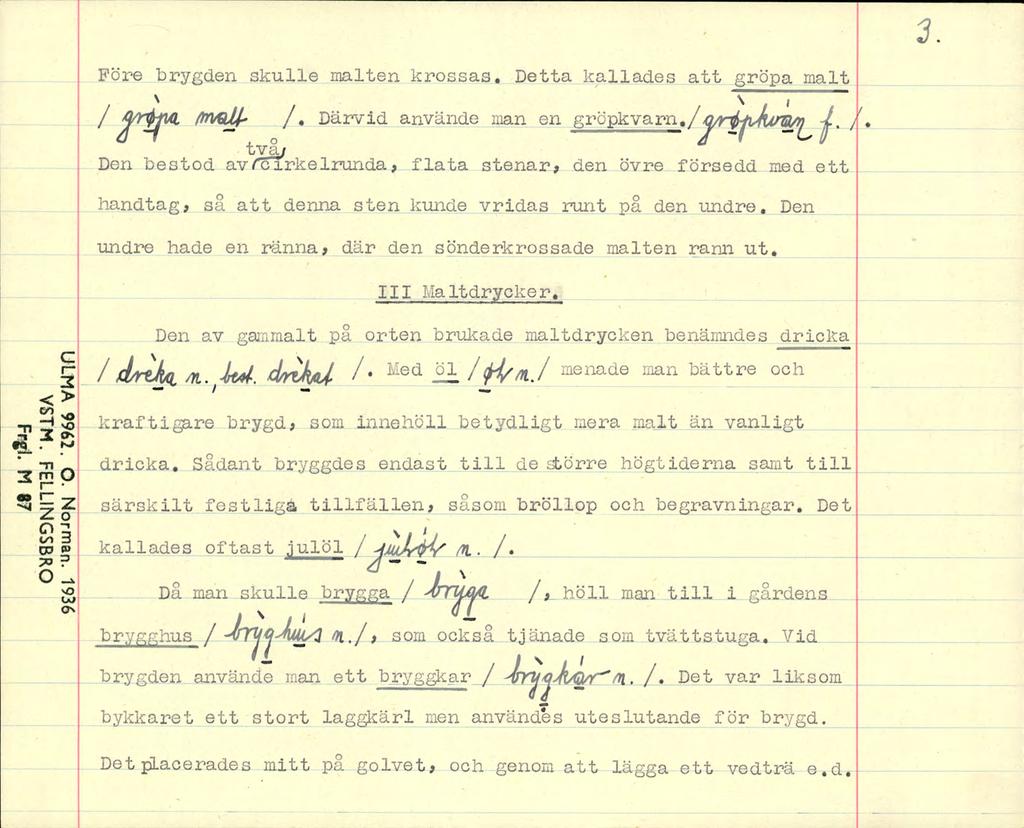 3.
Före brygden skulle malten krossas. Detta kallades att gröpa malt
/ grø̀pa malt /. Därvid använde man en gröpkvarn./ grø̀pkván f. /.
två
Den bestod av cirkelrunda, flata stenar, den övre försedd med ett
handtag, så att denna sten kunde vridas runt på den undre. Den
undre hade en ränna, där den sönderkrossade malten rann ut.
III Maltdrycker.
Den av gammalt på orten brukade maltdrycken benämndes dricka
/ drèka n., best. drèkat /. Med öl / øl n./ menade man bättre och
kraftigare brygd, som innehöll betydligt mera malt än vanligt
dricka. Sådant bryggdes endast till de större högtiderna samt till
särskilt festliga tillfällen, såsom bröllop och begravningar. Det
kallades oftast julöl / jùløl n. /.
Då man skulle brygga / brỳga /, höll man till i gårdens
brygghus / brỳghus n./, som också tjänade som tvättstuga. Vid
brygden använde man ett bryggkar / brỳgkár n. /. Det var liksom
bykkaret ett stort laggkärl men användes uteslutande för brygd.
Det placerades mitt på golvet, och genom att lägga ett vedträ e.d.
ULMA 9962. O. Norman. 1936
VSTM. FELLINGSBRO
Frgl. M 87